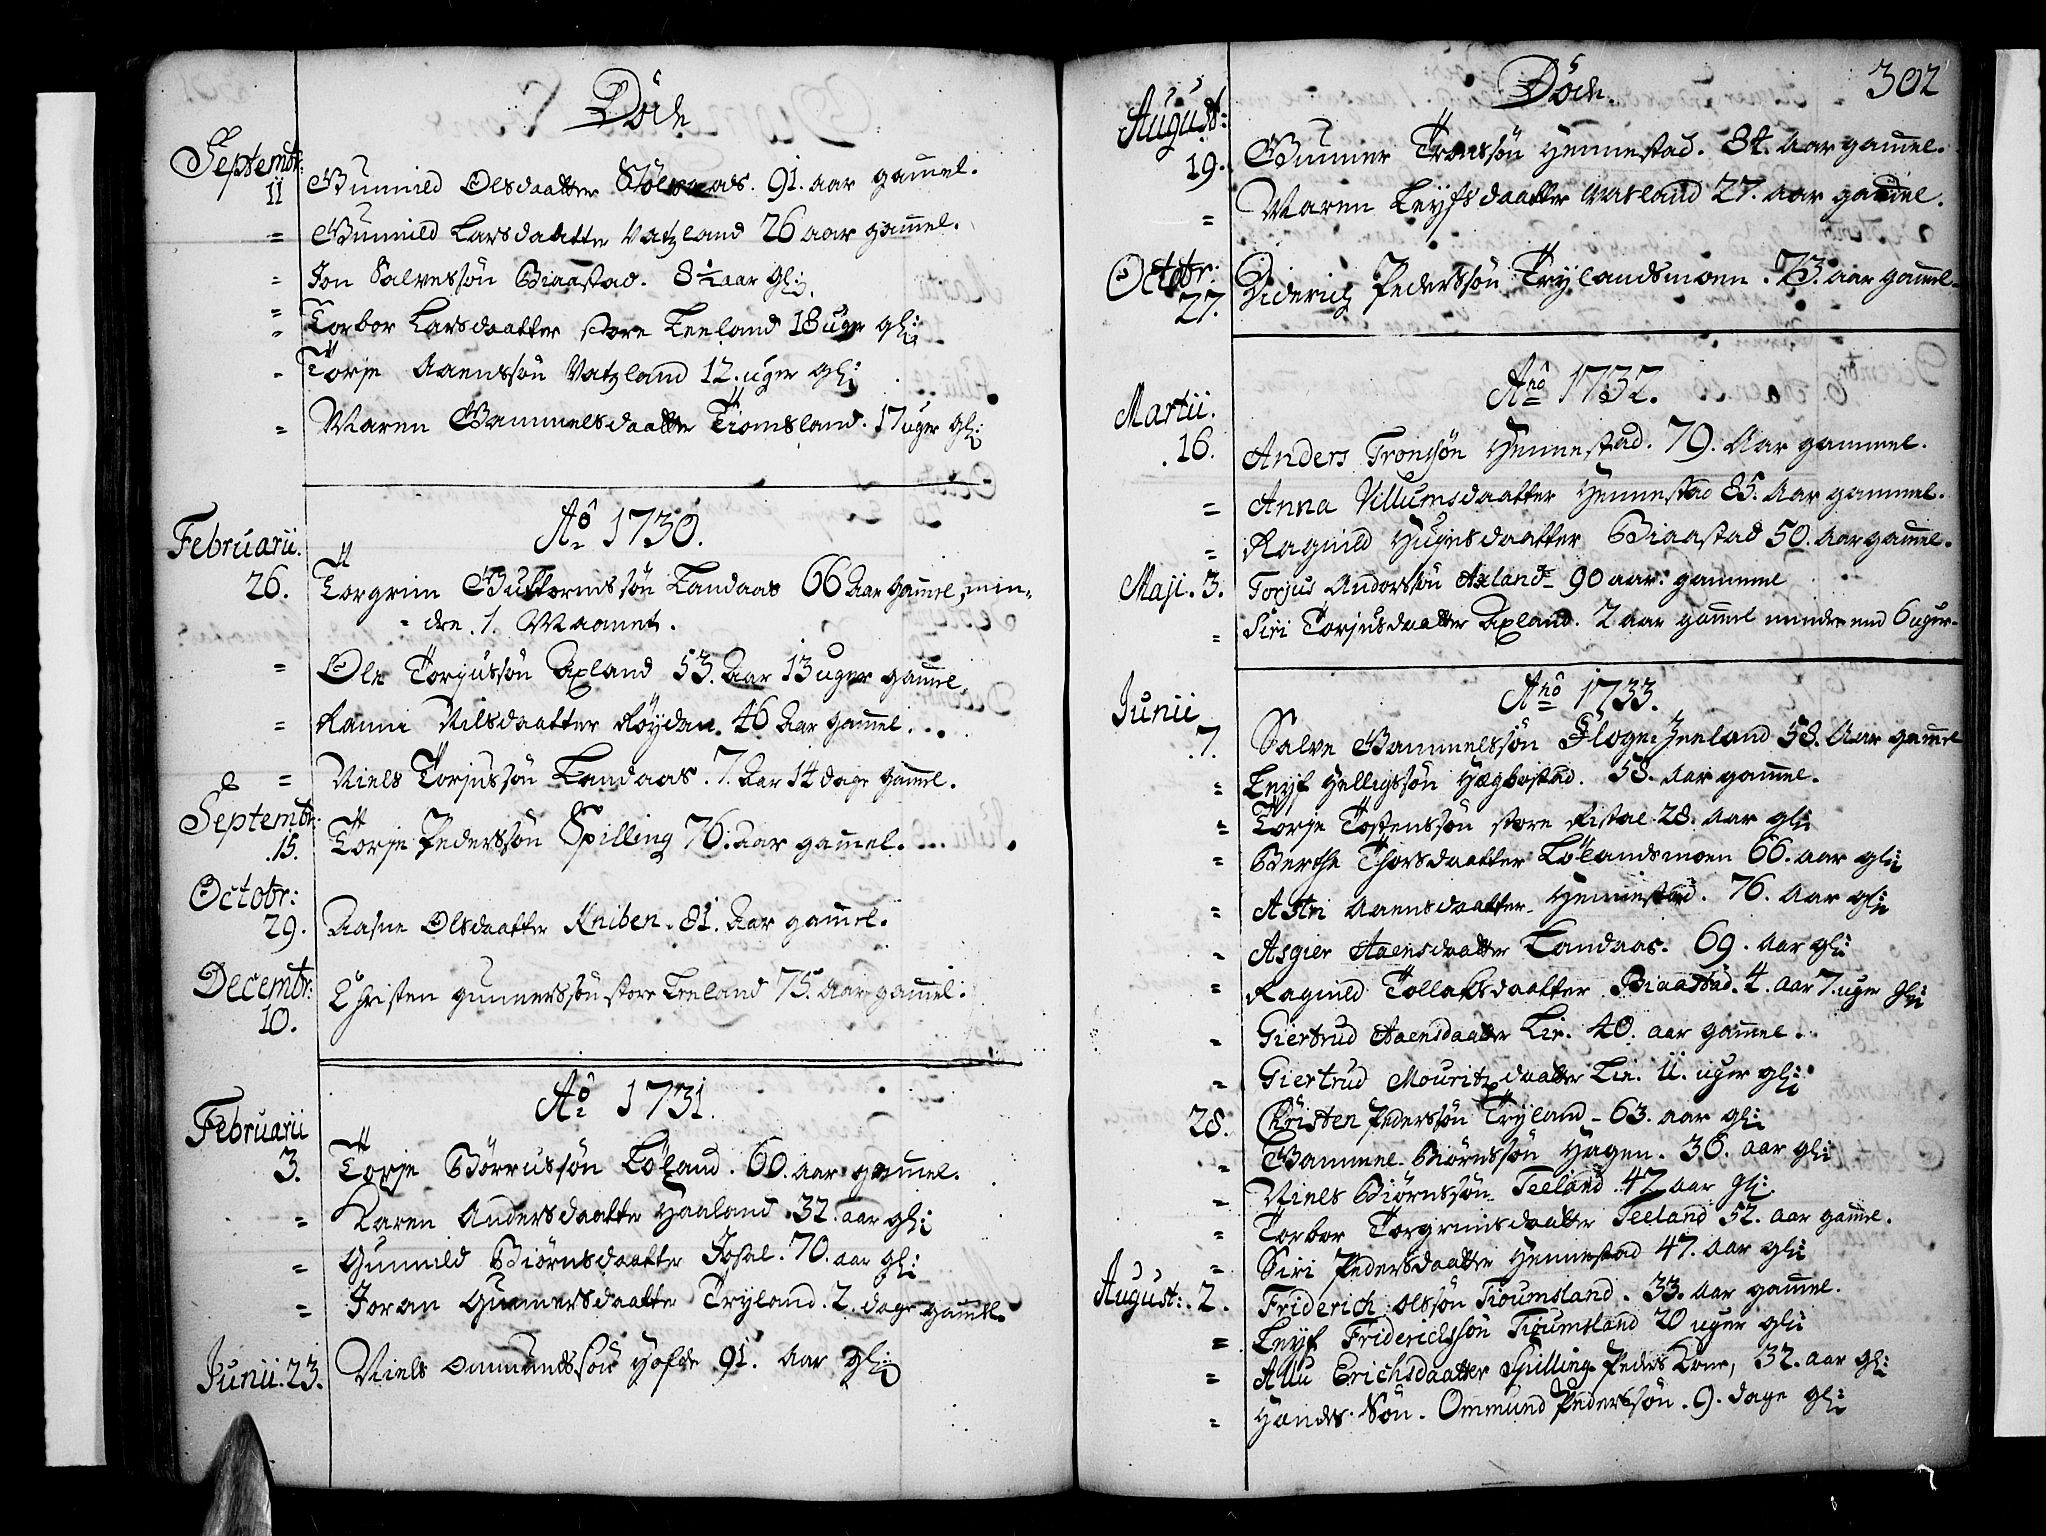 Döde
Septembr:
11 Gunnild Olsdaatter 91. aar gam̄el.
= Gunnild Larsdaatter Vatzland 26 aar gam̄el.
= Jon Salvessön Biaastad. 8½ aar gl:
= Torbor Larsdaatter store Leeland 18 uger gl:
- Torje Aaenssön Vatzland 12. uger gl:
= Maren Gammelsdaatter Tiomsland. 17 uger gl:
Ao 1730.
Februarii.
26. Torgrim Guttormssön Landaas 66 Aar gam̄el, min-
dre 1. Maanet.
= Ole Torjussön Axland 53. Aar 13 uger gam̄el.
= Ranni Nilsdaatter Röydan. 46 Aar gam̄el.
= Niels Torjussön Landaas. 7. Aar 14 dage gam̄el.
Septembr:
15. Torje Pederssön Spilling 76. aar gam̄el.
Octobr:
29. Aasne Olsdaatter Kniben. 81. Aar gam̄el.
Decembr:
10. Christen Gunnerssön store Leeland 75. Aar gam̄el.
Ao 1731.
Februarii
3. Torje Börrussön Löland. 60. aar gam̄el.
= Karen Andersdaatter Haaland. 32. aar gl:
= Gunnild Biörnsdaatter Josal. 70. aar gl:
= Joran Gunnersdaatter Tryland. 2. dage gam̄el.
Junii. 23. Niels Ommundssön Hofde 91. Aar gl:
Döde. 302
August:
19. Gunner Tronssön Hennestad. 84. aar gam̄el.
= Maren Leyfsdaatter 27. aar gam̄el.
Octobr:
27. Diderich Pederssön Trylandsmoen. 73. aar gam̄el.
Ano 1732.
Martii.
16. Anders Tronssön Hennestad. 79. Aar gammel.
= Anna Villumsdaatter Hennestad 85. Aar gammel.
= Ragnild Hujesdaatter Biaastad 50. aar gam̄el.
Maji. 3. Torjus Andorssön Axland 90 aar. gammel
= Siri Torjusdaatter Axland. 2 aar gam̄el mindre end 6 uger.
Ano 1733.
Junii
7. Salve Gammelssön Floge-Zeeland 58. Aar gam̄el
= Leyf Helligssön Hægbostad. 58. Aar gam̄el.
= Torje Tostenssön store Ristal 28. Aar gl:
= Berthe Thorsdaatter Lölandsmoen 66. aar gl:
= Astri Aaensdaatter Hennestad. 76. Aar gl:
- Asgier Aaensdaatter Landaas. 69. Aar gl:
= Ragnild Tollaksdaatter Biaastad. 4. aar 7. uger gl:
- Giertrud Aaensdaatter Lie. 40. aar gam̄el.
= Giertrud Mouritzdaatter Lie. 11. uger gl:
28. Christen Pederssön Tryland 63. aar gl:
- Gammel Biörnssön Hagen. 36. aar gl:
- Niels Biörnssön Teeland 47 aar gl:
- Torbor Torgrimsdaatter Teeland 52. aar gam̄el.
= Siri Pedersdaatter Hennestad 47. Aar gl:
August: 2. Friderich Olssön Tioumsland. 33. Aar gam̄el.
= Leyf Friderichssön Tioumsland 20 uger gl:
= Erichsdaatter Spilling Peders Kone, 32. aar gl:
- Hendes Sön. Ommund Pederssön. 9. dage gl: